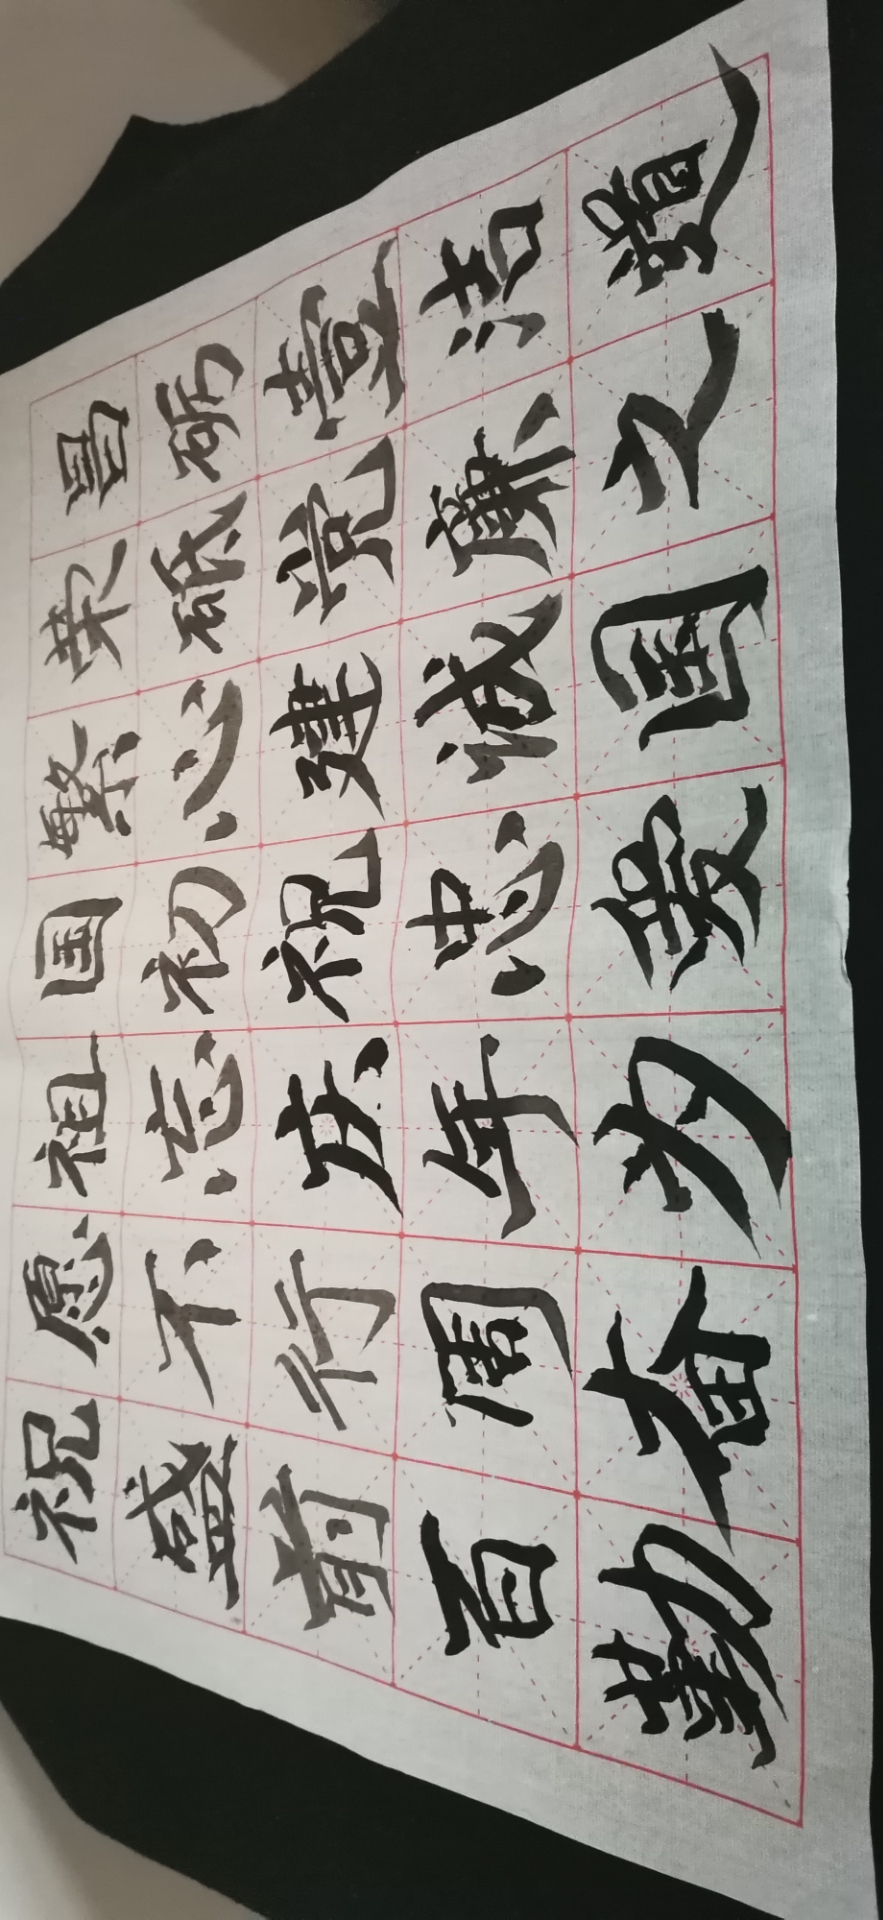 祝愿祖国繁荣昌
盛不忘初心砥砺
前行庆祝建党壹
百周年忠诚廉洁
勤奋为爱国之道